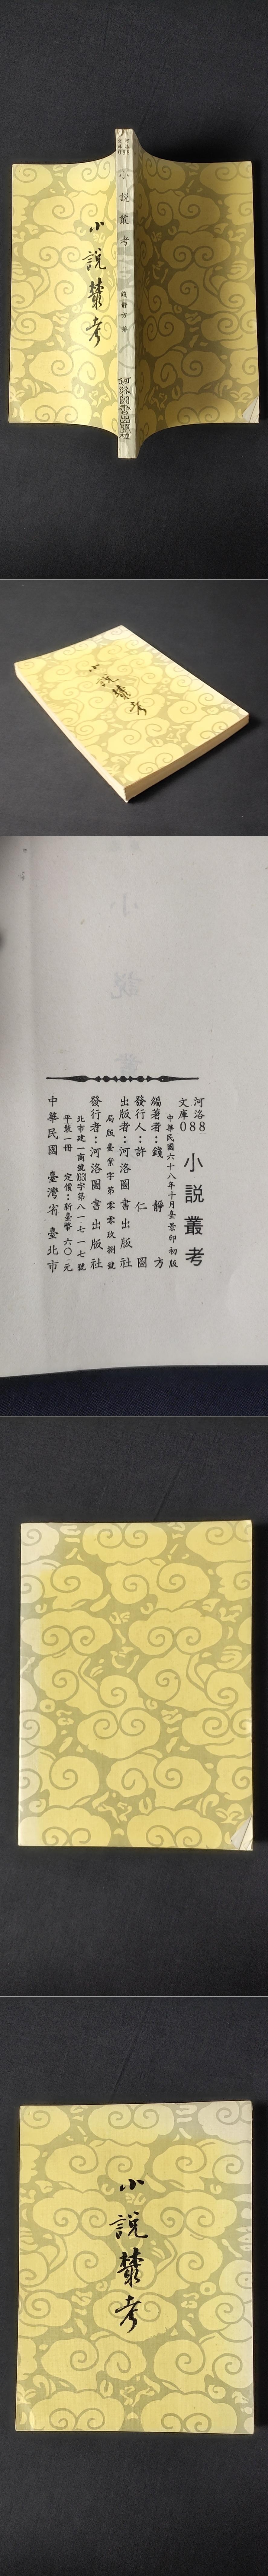 小說叢考
河洛
文庫
小說叢考
錢靜方 著
河洛圖書出版社
小說叢考
河洛 88
文庫 08
小說叢考
中華民國六十八年十月臺景印初版
編著者：錢靜方
發行人：許仁圖
出版者：河洛圖書出版社
局版臺業字第零零玖捌號
發行者：河洛圖書出版社
北市建一商號(63)字第八一七一七號
平裝一冊 定價：新臺幣六〇元
中華民國 臺灣省 臺北市
小說叢考